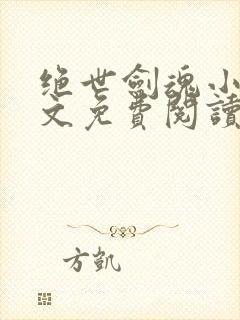 绝世劍魂小
文免費閱讀
方凱